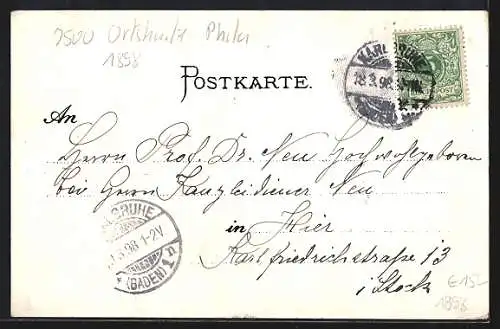 1898
POSTKARTE.
KARLSRUHE
18.3.98.
An
Herrn Prof. Dr. Neu Hochwohlgeboren
bei Herrn Kanzleidiener Neu
in Hier
Karlfriedrichstraße 13
I Stock
KARLSRUHE
3.98 1-2V
(BADEN) 1n
€15,-
1898